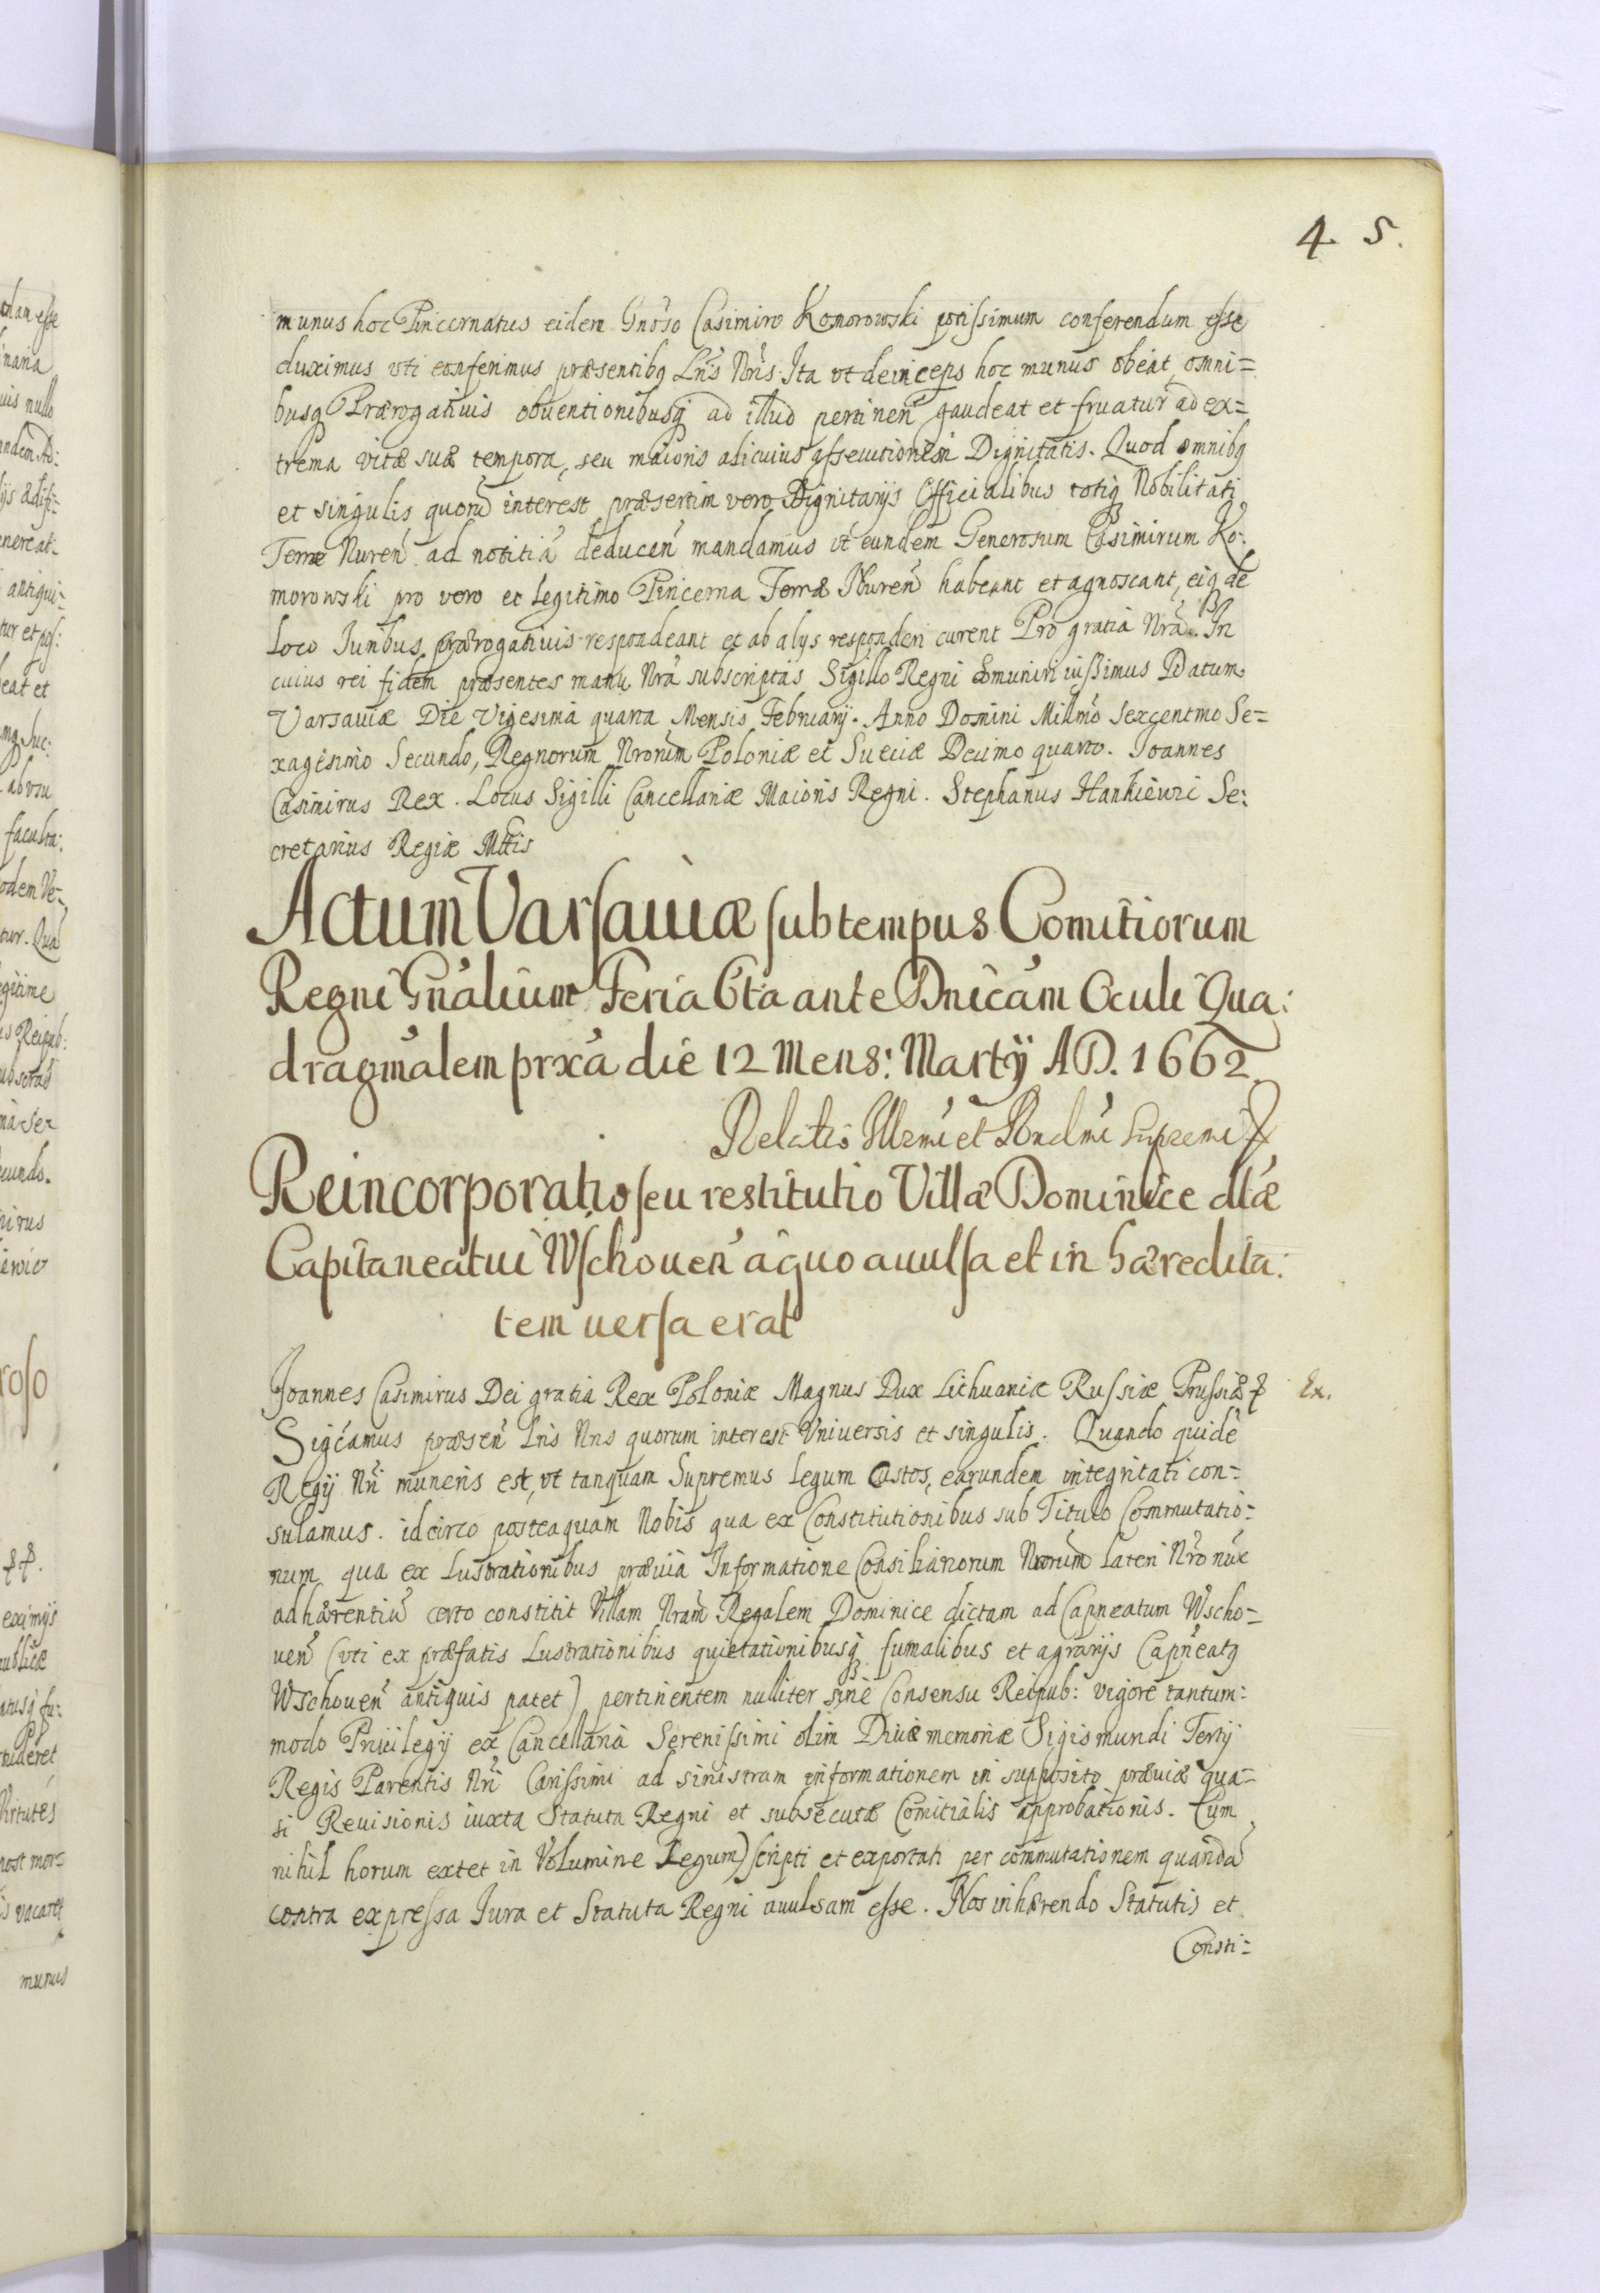 4. 5.
munus hoc Pincernatus eidem Gnōso Casimiro Komorowski potissimum conferendum esse
duximus uti conferimus præsentibq Lr̃is Nr̃is. Ita vt deinceps hoc munus obeat, omni=
busq Prærogatiuis obuentionibusq ad illud pertineñ gaudeat et fruatur ad ex=
trema vitæ suæ tempora, seu maioris alicuius assecutionem Dignitatis. Quod omnibq
et singulis quorũ interest præsertim vero Dignitarijs Officialibus totiq Nobilitati
Terræ Nureñ ad notitiã deduceñ mandamus ut eundem Generosum Casimirum Ko:
morowski pro vero et legitimo Pincerna Terræ Nureñ habeant et agnoscant, eiq de
loco Iuribus prærogatiuis respondeant et ab alys responderi curent Pro gratia Nrã. In
cuius rei fidem præsentes manu Nrã subscriptas Sigillo Regni cõmuniri iussimus Datum.
Varsauiæ Die Vigesima quarta Mensis Februarij. Anno Domini Millmõ Sexcentmo Se=
xagesimo Secundo, Regnorum Nrorum Poloniæ et Sueciæ Decimo quarto. Joannes
Casimirus Rex. Locus Sigilli Cancellariæ Maioris Regni. Stephanus Hankiewic Se:
cretarius Regiæ Mttis
Actum Varsauiæ sub tempus Comitiorum
Regni Gnãlium Feria 6ta ante Dnicãm Oculi Qua:
dragm̃alem prxã die 12 Mens: Martÿ AD. 1662.
Relatio Illrmi et Rndmi Supremi
Reincorporatio seu restitutio Villæ Dominice dtæ
Capitaneatui Wschoueñ à quo auulsa et in hæredita:
tem uersa erat
Joannes Casimirus Dei gratia Rex Poloniæ Magnus Dux Lithuaniæ Russiæ Prussiæ
Ex.
Sigcamus præseñ Lr̃is Nris quorum interest Vniuersis et singulis. Quando quidẽ
Regij Nr̃i muneris est, vt tanquam Supremus Legum Custos, earundem integritati con=
sulamus. idcirco posteaquam Nobis qua ex Constitutionibus sub Titulo Commutatio=
num qua ex Lustrationibus præuia Informatione Consiliariorum Nrorum Lateri Nrõ nũc
adhærentiũ certo constitit Villam Nram Regalem Dominice dictam ad Capneatum Wscho=
ueñ (vti ex præfatis Lustrationibus quietationibusq fumalibus et agrarijs Capneatq
Wschoueñ antiquis patet) pertinentem nulliter sine Consensu Reipub: vigore tantum=
modo Priuilegij ex Cancellaria Serenissimi olim Diuæ memoriæ Sigismundi Tertij
Regis Parentis Nr̃i Carissimi ad sinistram informationem in supposito præuiæ qua=
si Reuisionis iuxta Statuta Regni et subsecutæ Comitialis approbationis. Cum
nihil horum extet in Volumine Legum) scripti et exportati per commutationem quandã
contra expressa Jura et Statuta Regni auulsam esse. Nos inhærendo Statutis et
Consti=